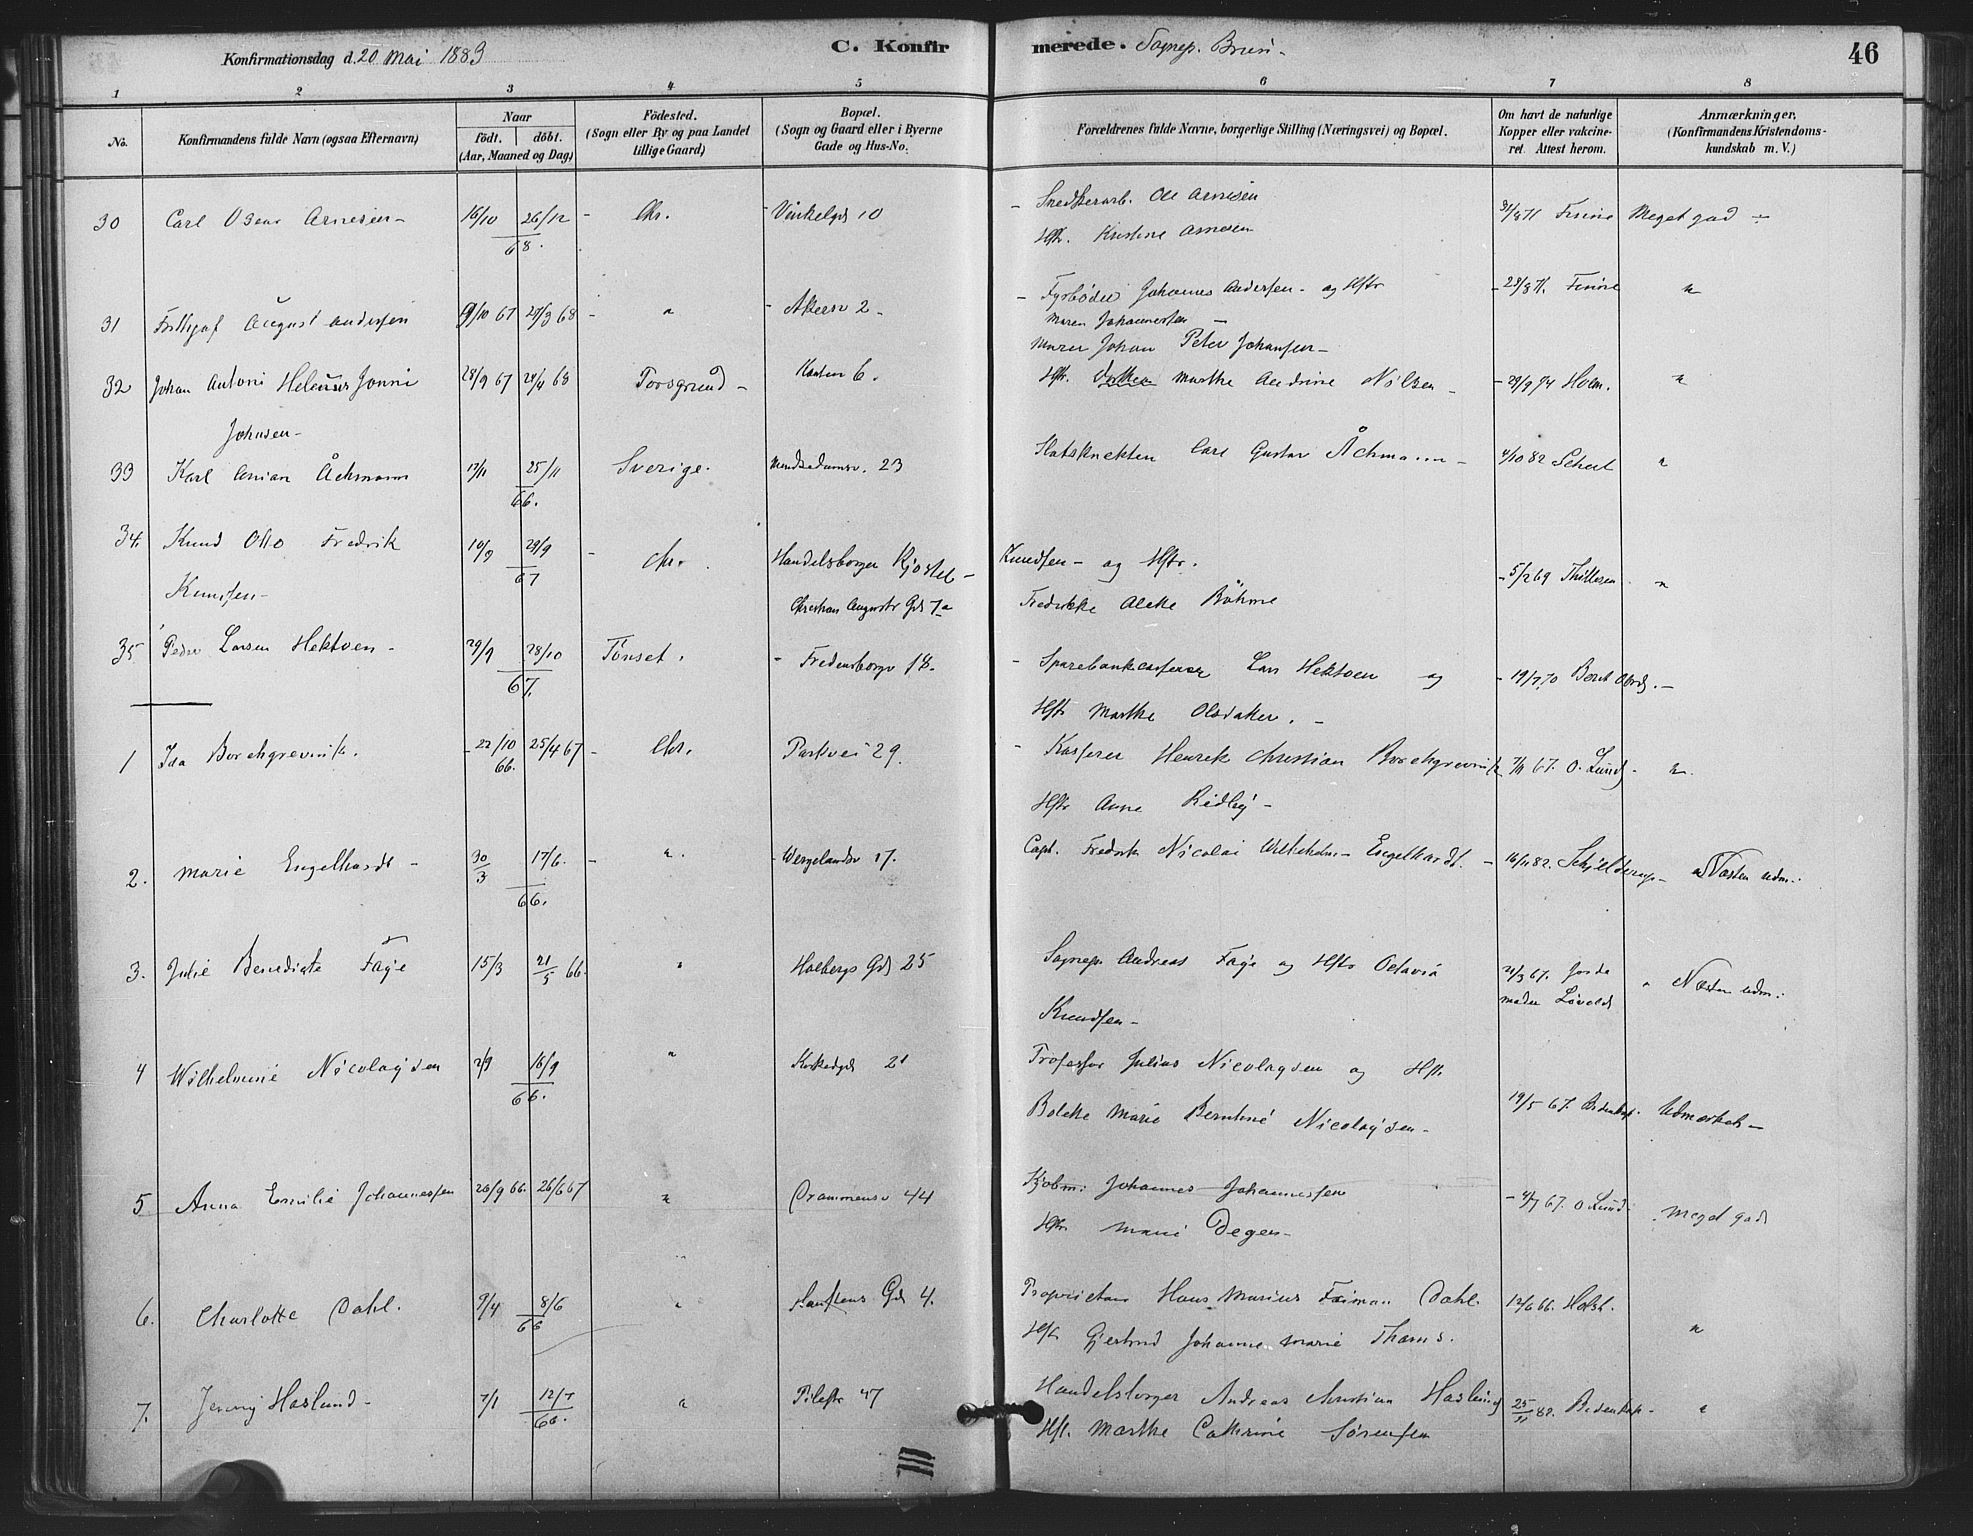 Konfirmationsdag d. 20 Mai 1883
C. Konfirmerede. Sognep. Bruun
46
1 2 3 4 5 6 7 8
No.
Konfirmandens fulde Navn (ogsaa Efternavn)
Naar
födt. döbt.
(Aar, Maaned og Dag)
Födested.
(Sogn eller By og paa Landet
tillige Gaard)
Bopæl.
(Sogn og Gaard eller i Byerne
Gade og Hus-No.
Forældrenes fulde Navne, borgerlige Stilling (Næringsvei) og Bopæl.
Om havt de naturlige
Kopper eller vakcine-
ret. Attest herom.
Anmærkninger,
(Konfirmandens Kristendoms-
kundskab m. V.)
30 Carl Oscar Arnesen - 16/10 26/12 68. - Chr. - Vinkelgd 10 - Snedkerarb. Ole Arnesen
Hstr. Kristine Arnesen
31/8 71 Meget god -
31 Frithjof August Andersen 9/10 67 29/3 68 - " - Akersv 2 - - Fyrbøder Johannes Andersen - og Hstr
Maren Johannessen -
- 29/8 71. "
32 Johan Antoni Jonni
Johnsen -
28/9 67 24/4 68 Porsgrund - 6. Murer Johan Peter Johansen -
Hstr. Marthe Andrine Nilsen -
- 29/9 74 Holm. "
33 Karl Åchmann 13/11 25/11 66. Sverige. 23 Carl Gustav Åchmann - 4/10 82 "
34. Knud Otto Fredrik
Knudsen -
10/9 29/9 67 - Chr. Handelsborger Kjostel -
Christian Augusts Gd 7a
Knudsen - og Hstr.
Fredrikke Böhme
- 5/2 69 "
35 Peder Larsen Hektoen - 29/9 28/10 67. Tönset. - Fredensborgv 18. - Sparebankcasserer Lars Hektoen og
Hstr Marthe Olsdaker. -
- 19/7 70 Berit
1 Ida Borchgrevink. - 22/10 66. 25/4 67 - Chr. Parkvei 29. - Kasserer Henrik Christian Borchgrevink
Hstr Anne Ridley -
7/11 67. O. Lund - "
2. Marie Engelhardt - 30/3 17/6. 66. - " - Wergelandsv 17. Capt. Fredrik Nicolai Wilhelm - Engelhardt - 16/11 82. Schjelderup - " Næsten udm.
3. Julie Benedicte Faÿe 15/3 21/5 66. " Holbergs Gd 25 Sognep. Andreas Faÿe og Hstr Octavia
Knudsen -
21/3 67. Jorde
moder Løvold
" Næsten udm.
4 Wilhelmine Nicolaysen 2/9 16/9 66. " 21 Professor Julius Nicolaysen og Hstr.
Bolette Marie Berntine Nicolaysen -
19/5 67. Bidenkap. Udmærket -
5 Anna Emilie Johannessen 26/9 66. 26/6 67 " Drammensv 44 Kjöbm: Johannes Johannessen
Hstr Marie Degen -
- 4/7 67. O Lund - Meget god
6. Charlotte Dahl. 9/4 8/6 66 " Gd 4. Proprietær Hans Marius Dahl.
Hstr Gjertrud Johanne Marie Thams.
12/6 66. Holst. "
7. Jenny Haslund - 7/1 12/7 66. " Pilestr 47 Handelsborger Andreas Christian Haslund
Hst. Marthe Cathrine Sørensen
25/11 82. Bidenkap - "